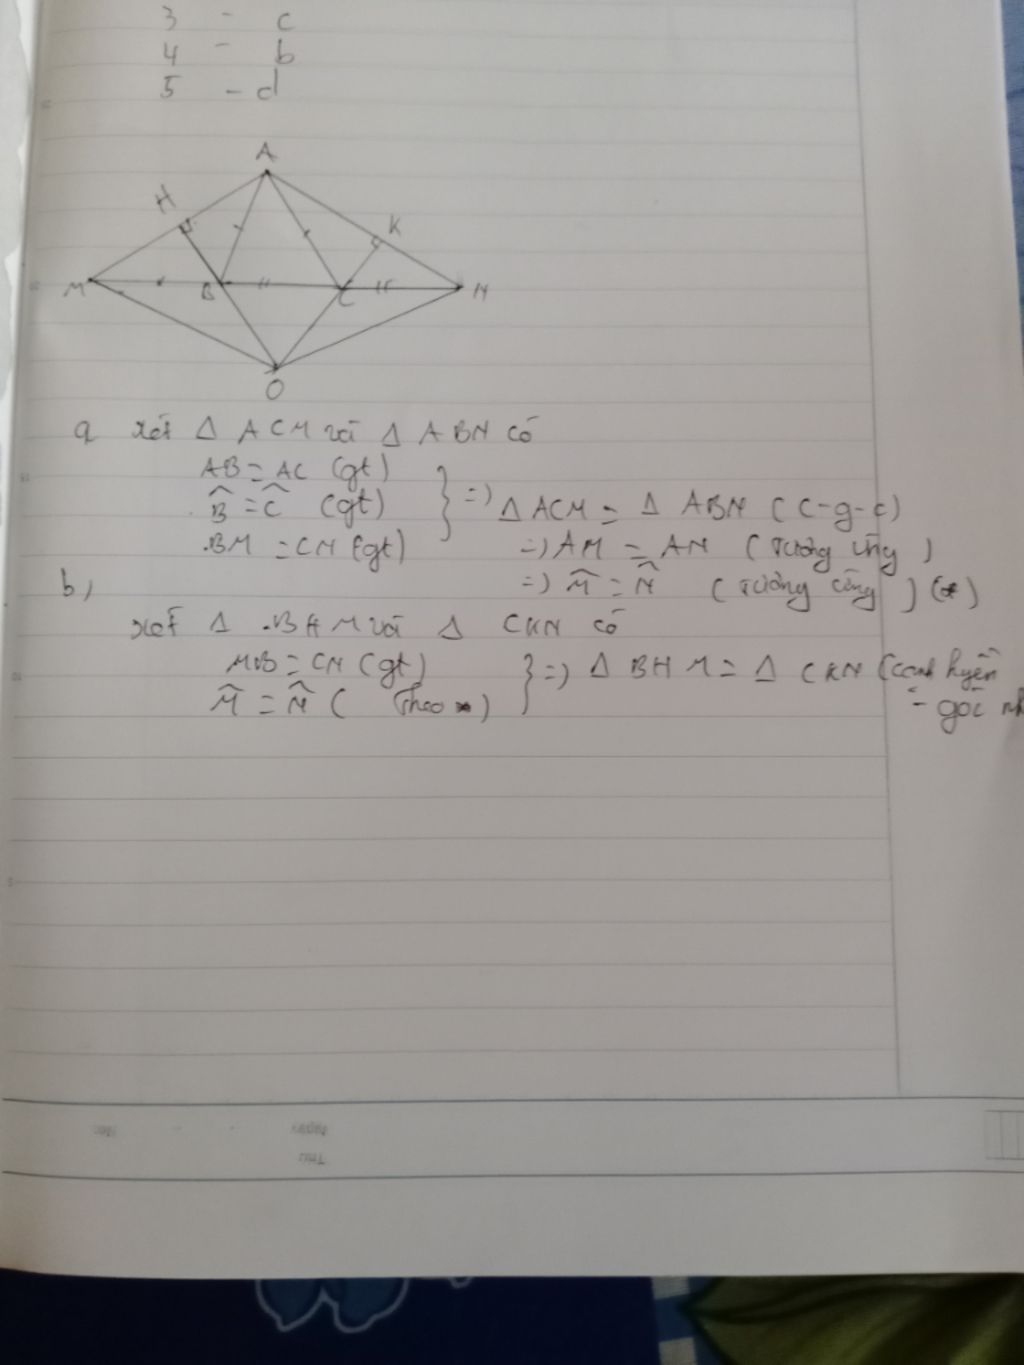 3 - c
4 - b
5 - d
A
H
K
M B C N
O
a xét Δ ACM và Δ ABN có
AB = AC (gt)
B̂ = Ĉ (gt)
BM = CN (gt)
} =) Δ ACM = Δ ABN (c-g-c)
=) AM = AN (tương ứng)
=) M̂ = N̂ (tương ứng) (*)
b,
xét Δ BHM và Δ CKN có
MB = CN (gt)
M̂ = N̂ (theo *)
} =) Δ BHM = Δ CKN (cạnh huyền
- góc nh